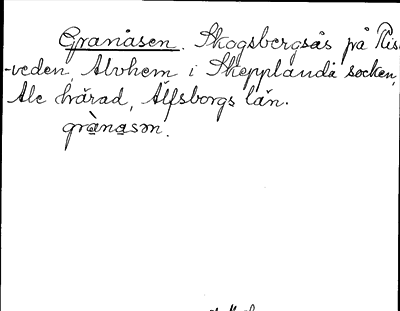 Granåsen. Skogsbergsås på Ris
-veden, Alvhem i Skepplanda socken,
Ale härad, Älfsborgs län.
grànasən.